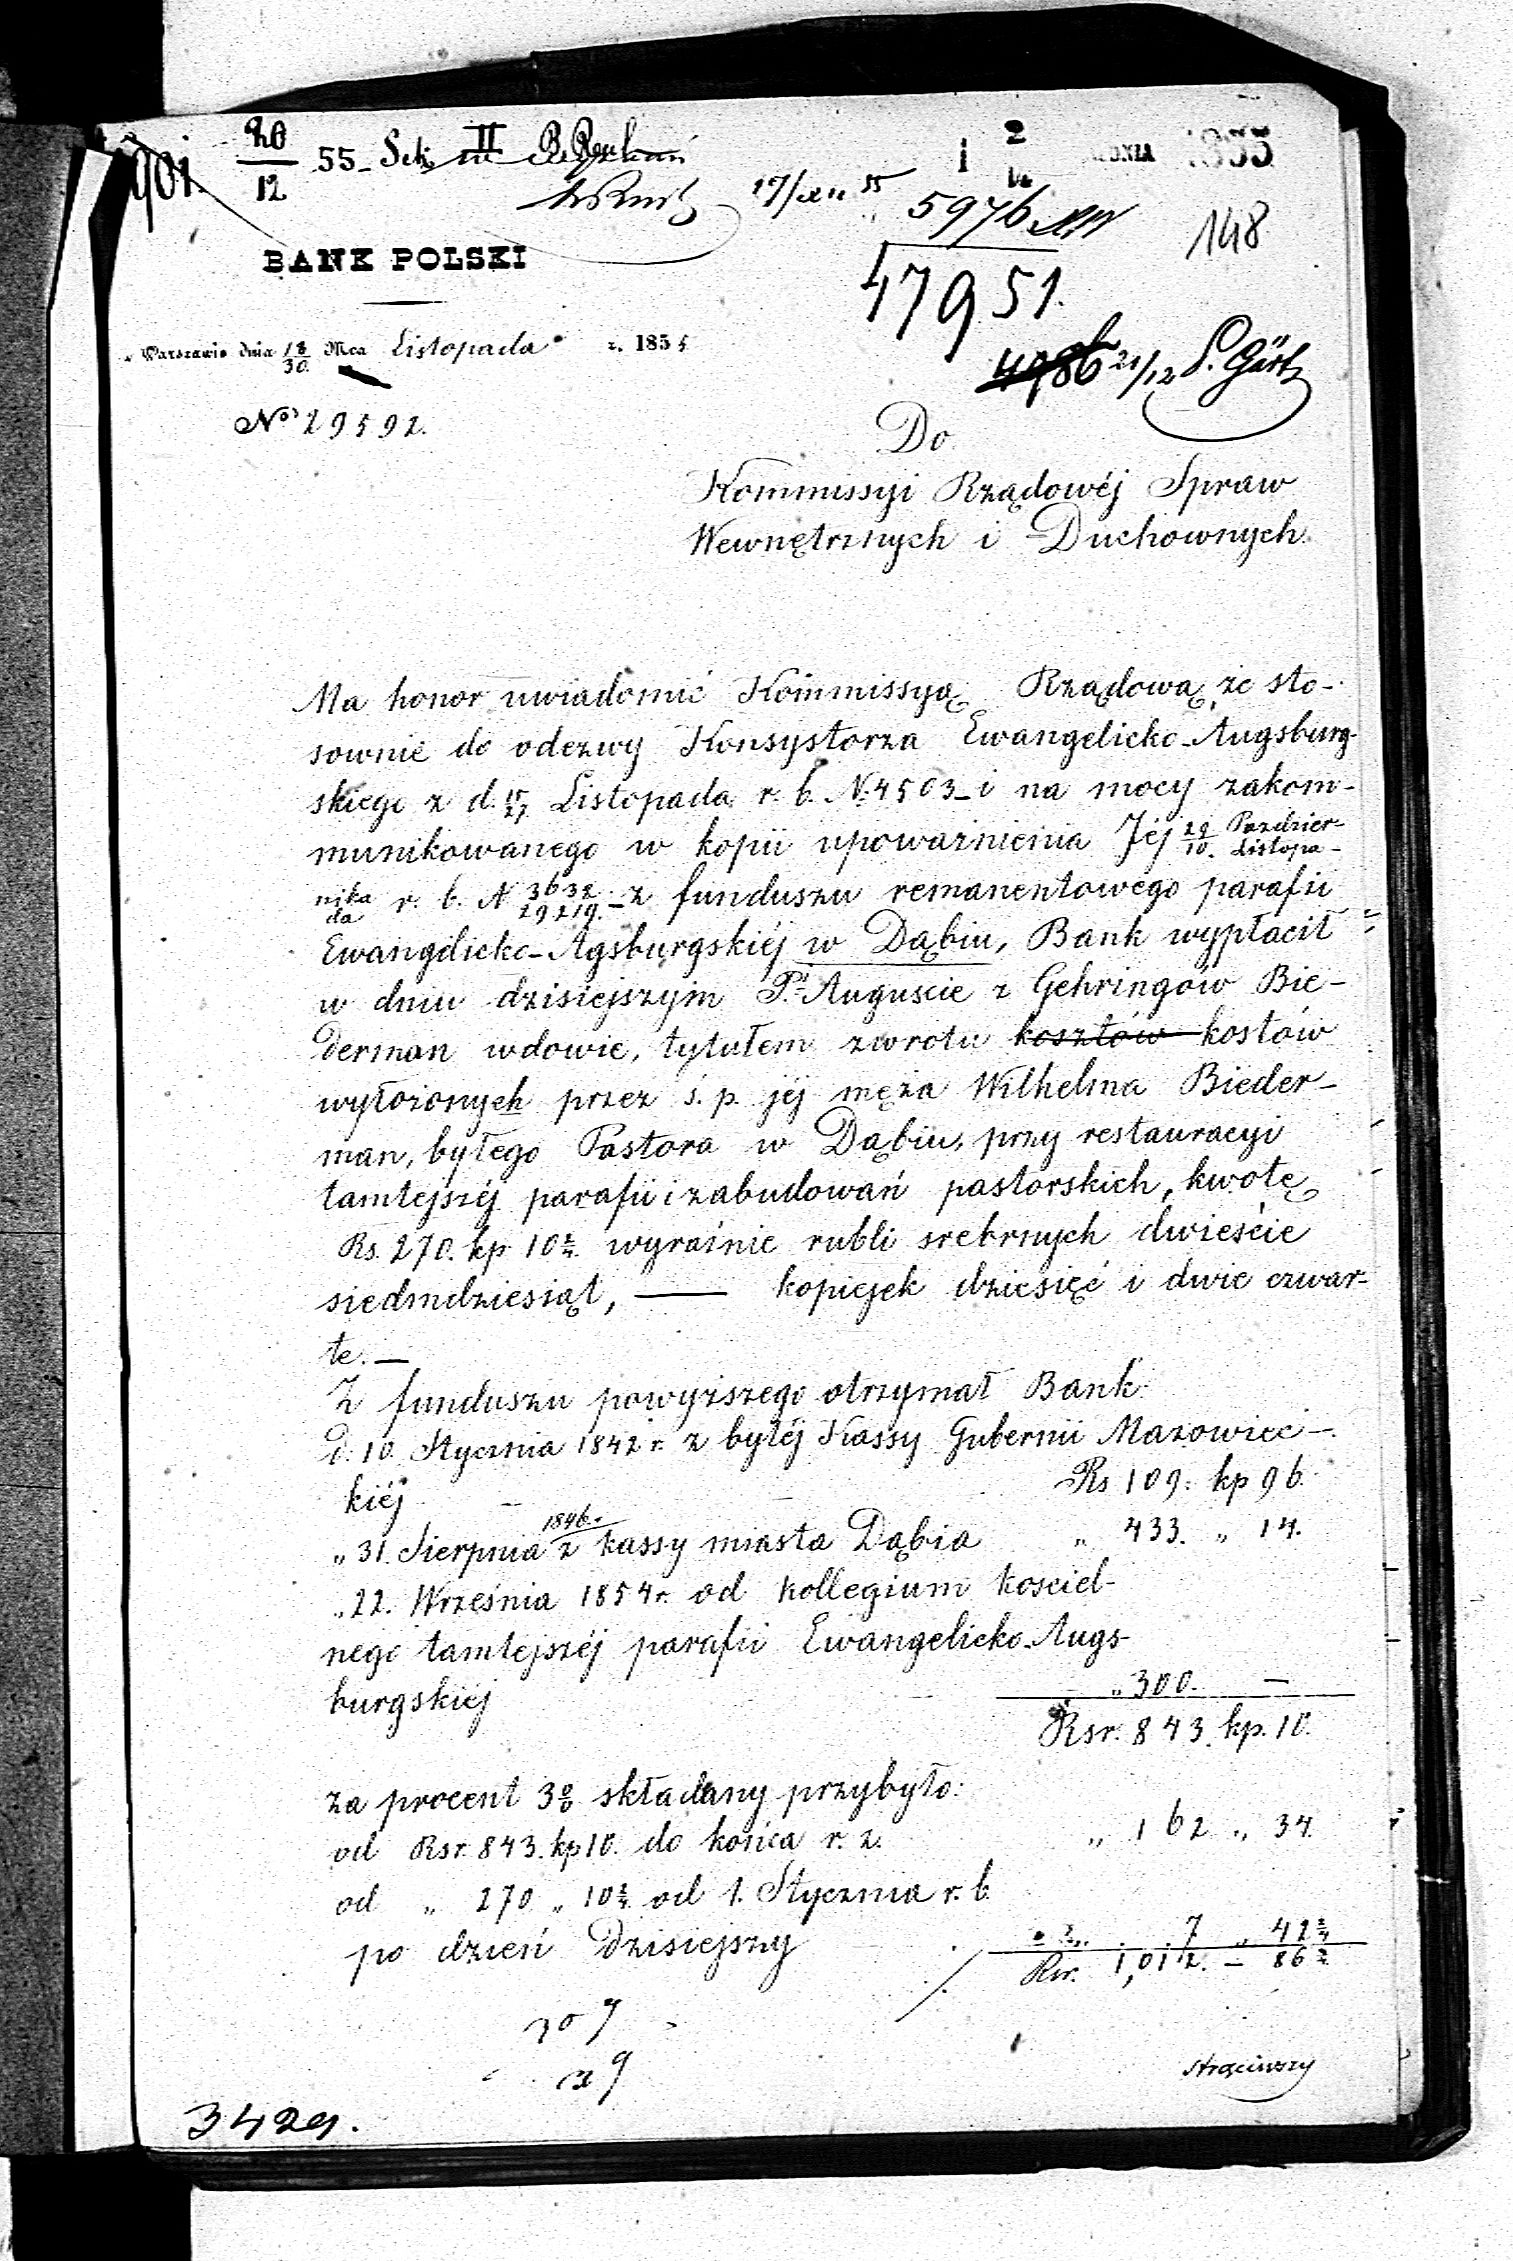 20/12 55 Sek II
17/XII 55
5976
148
47951.
4986 21/12
BANK POLSKI
w Warszawie dnia 18/30 Mca Listopada r. 1855
No 29592.
Do
Kommissyi Rządowéj Spraw
Wewnętrznych i Duchownych.
Ma honor uwiadomić Kommissyą Rządową, że sto-
sownie do odezwy Konsystorza Ewangelicko-Augsburg-
skiego z d. 15/27 Listopada r. b. N. 4503 - i na mocy zakom-
munikowanego w kopii upoważnienia Jéj 29/10. Paździer-/Listopa-
nika/da r. b. N 3632/29219. - z funduszu remanentowego parafii
Ewangelicko-Agsburgskiéj w Dąbiu, Bank wypłacił
w dniu dzisiejszym P. Auguscie z Gehringów Bie-
derman wdowie, tytułem zwrotu kosztów kostów
wyłożonych przez ś. p. jéj męża Wilhelma Bieder-
man, byłego Pastora w Dąbiu, przy restauracyi
tamtejszéj parafii i zabudowań pastorskich, kwotę
Rs. 270. kp 10 2/4. wyraźnie rubli srebrnych dwieście
siedmdziesiąt, — kopiejek dziesięć i dwie czwar-
te. —
Z funduszu powyższego otrzymał Bank:
d. 10. Stycznia 1842 r. z byłéj Kassy Gubernii Mazowiec-
kiéj Rs 109. kp 96.
„ 31. Sierpnia 1846. z kassy miasta Dąbia „ 433. „ 14.
„ 22. Września 1854 r. od kollegium kosciel-
nego tamtejszéj parafii Ewangelicko-Augs-
burgskiéj „ 300. —
Rsr. 843. kp. 10.
za procent 3% składany przybyło:
od Rsr. 843. kp 10. do końca r. z. „ 162 „ 34.
od „ 270 „ 10 2/4 od 1. Stycznia r. b.
po dzień dzisiejszy „ 7 „ 42 2/4
Rsr. 1,012. - 86 2/4
strąciwszy
3429.